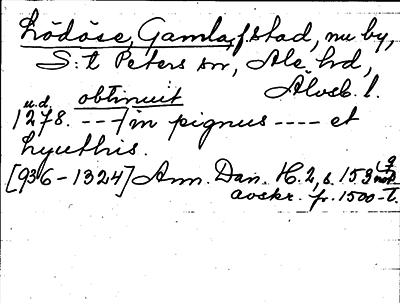 Lödöse, Gamla, f. stad, nu by,
S:t Peters sn, Ale hd,
Älvsb. l.
u.d. obtinuit
1278. --- in pignus ---- et
Lyuthis.
[936-1324] Ann. Dan. H. 2, s. 153 (9 not)
avskr. fr. 1500-t.